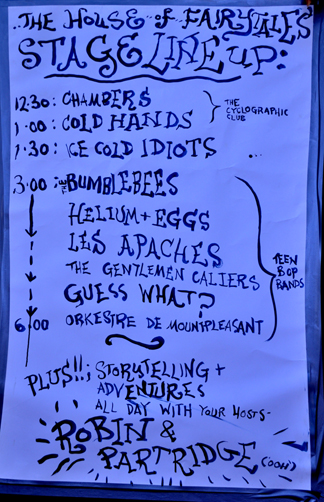 ..THE HOUSE of FAIRYTALES
STAGE LINE UP:
12:30: CHAMBERS
1:00: COLD HANDS
THE CYCLOGRAPHIC CLUB
1:30: ICE COLD IDIOTS ...
3:00: THE BUMBLEBEES
HELIUM + EGGS
LES APACHES
THE GENTLEMEN CALIERS
GUESS WHAT?
TEEN BOP BANDS
6:00 ORKESTRE DE MOUNTPLEASANT
PLUS!!; STORYTELLING +
ADVENTURES
ALL DAY WITH YOUR HOSTS-
ROBIN &
PARTRIDGE (OOH)